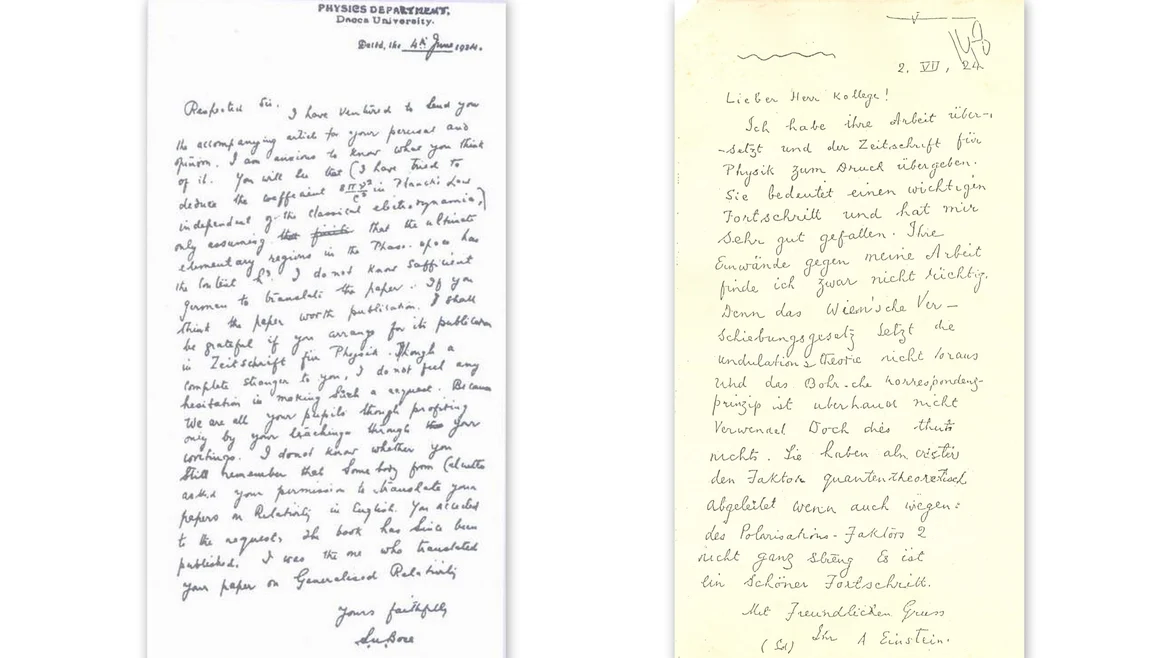 PHYSICS DEPARTMENT.
Dacca University.
Dated, the 4th June 1924.
Respected Sir, I have ventured to send you
the accompanying article for your perusal and
opinion. I am anxious to know what you think
of it. You will see that (I have tried to
deduce the coefficient 8πν²/c³ in Planck's Law
independent of the classical electrodynamics,)
only assuming that the ultimate
elementary regions in the Phase-space has
the content h³. I do not know sufficient
German to translate the paper. If you
think the paper worth publication. I shall
be grateful if you arrange for its publication
in Zeitschrift für Physik. Though a
complete stranger to you, I do not feel any
hesitation in making such a request. Because
We are all your pupils though profiting
only by your teachings through your
writings. I donot know whether you
Still remember that Somebody from Calcutta
asked your permission to translate your
papers on Relativity in English. You acceded
to the request. The book has since been
published. I was the one who translated
your paper on Generalised Relativity
Yours faithfully
S.N. Bose
2. VII, 24
Lieber Herr Kollege!
Ich habe ihre Arbeit über-
-setzt und der Zeitschrift für
Physik zum Druck übergeben.
Sie bedeutet einen wichtigen
Fortschritt und hat mir
Sehr gut gefallen. Ihre
Einwände gegen meine Arbeit
finde ich zwar nicht richtig.
Denn das Wien'sche Ver-
Schiebungsgesetz Setzt die
undulations theorie nicht voraus
Und das Bohr-che Korrespondenz-
prinzip ist uberhaud nicht
Verwendel Doch dies thut
nichts. Sie haben aln erster
den Faktor quantentheoretisch
abgeleitet wenn auch wegen:
des Polarisations-Faktors 2
nicht ganz Streng Es ist
ein Schöner Fortschritt.
Mit Freundlichen Gruss
(Sd) Ihr A Einstein.